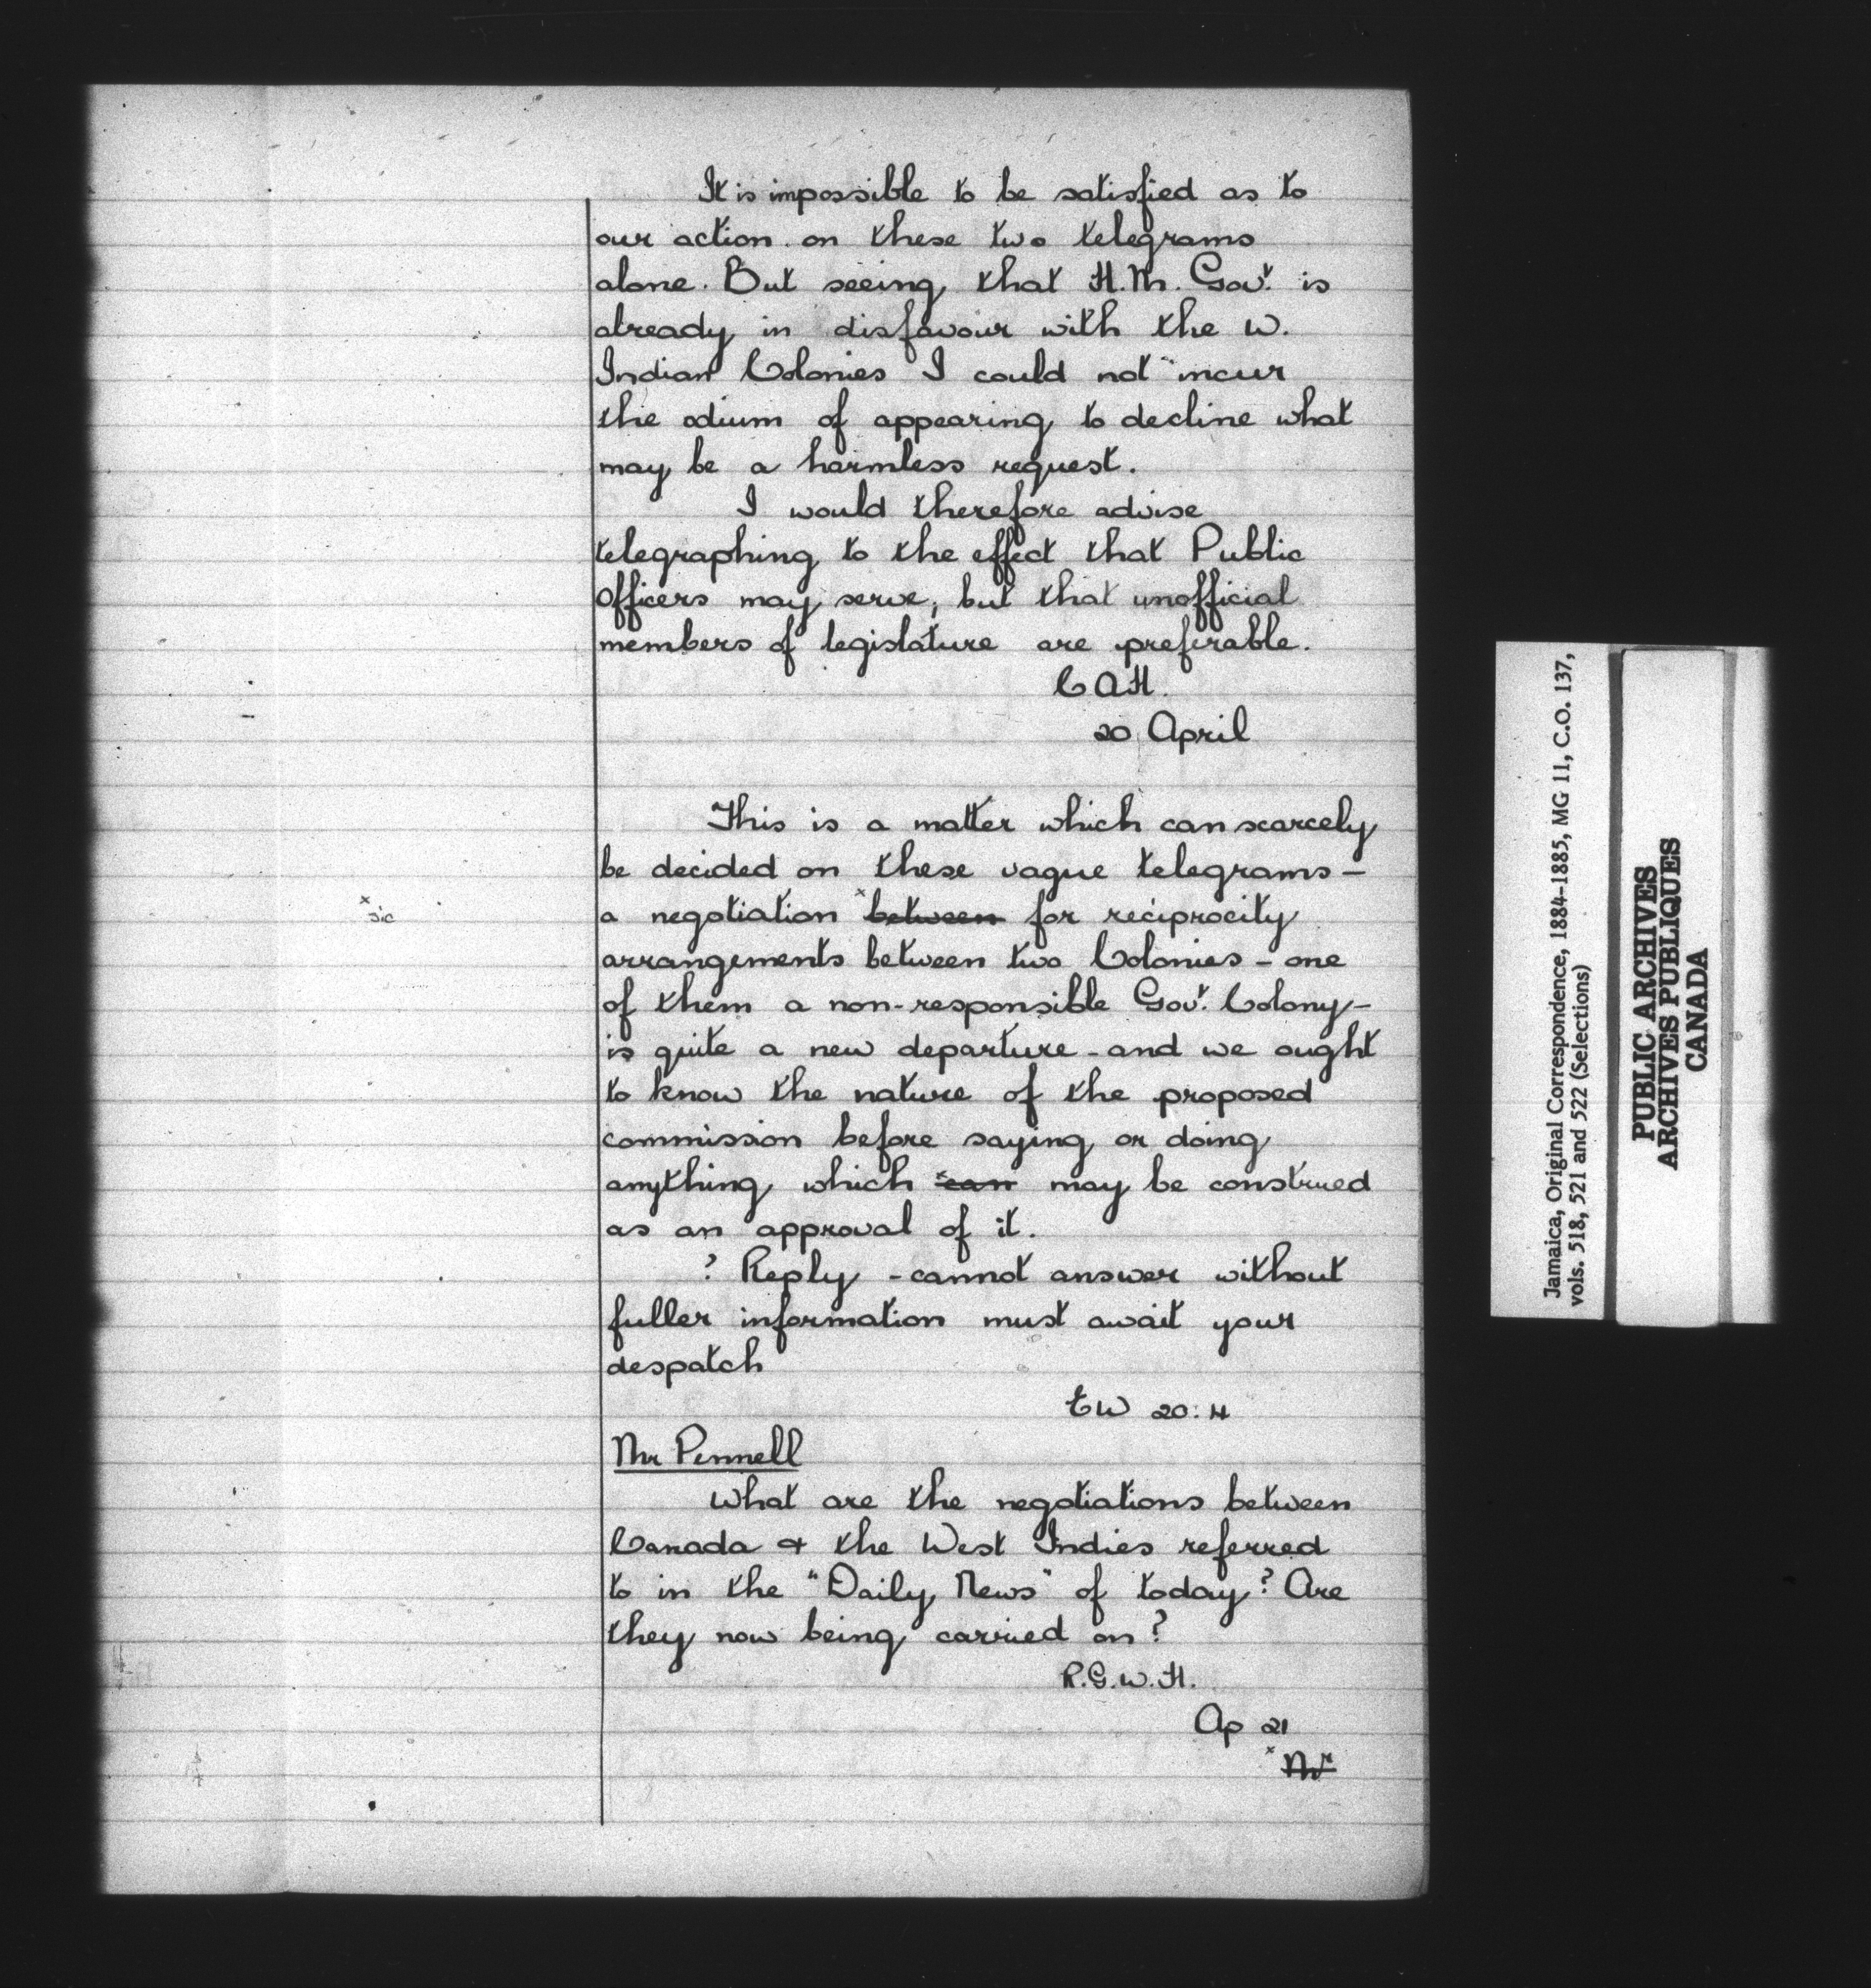 It is impossible to be satisfied as to
our action on these two telegrams
alone. But seeing that H.M. Govt. is
already in disfavour with the W.
Indian Colonies I could not incur
the odium of appearing to decline what
may be a harmless request.
I would therefore advise
telegraphing to the effect that Public
Officers may serve, but that unofficial
members of legislature are preferable.
C A H.
20 April
This is a matter which can scarcely
be decided on these vague telegrams —
x sic
a negotiation x between for reciprocity
arrangements between two Colonies - one
of them a non-responsible Govt. Colony -
is quite a new departure - and we ought
to know the nature of the proposed
commission before saying or doing
anything which x can may be construed
as an approval of it.
? Reply - cannot answer without
fuller information must await your
despatch
EW 20:4
Mr Pennell
What are the negotiations between
Canada & the West Indies referred
to in the "Daily News" of today? Are
they now being carried on?
R.G.W.H.
Ap 21
x Mr
Jamaica, Original Correspondence, 1884-1885, MG 11, C.O. 137,
vols. 518, 521 and 522 (Selections)
PUBLIC ARCHIVES
ARCHIVES PUBLIQUES
CANADA